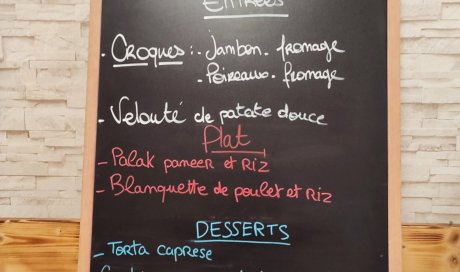 ENTRÉES
- Croques : - Jambon - fromage
- Poireaux - fromage
- Velouté de patate douce
Plat
- Palak paneer et Riz
- Blanquette de poulet et Riz
DESSERTS
- Torta caprese